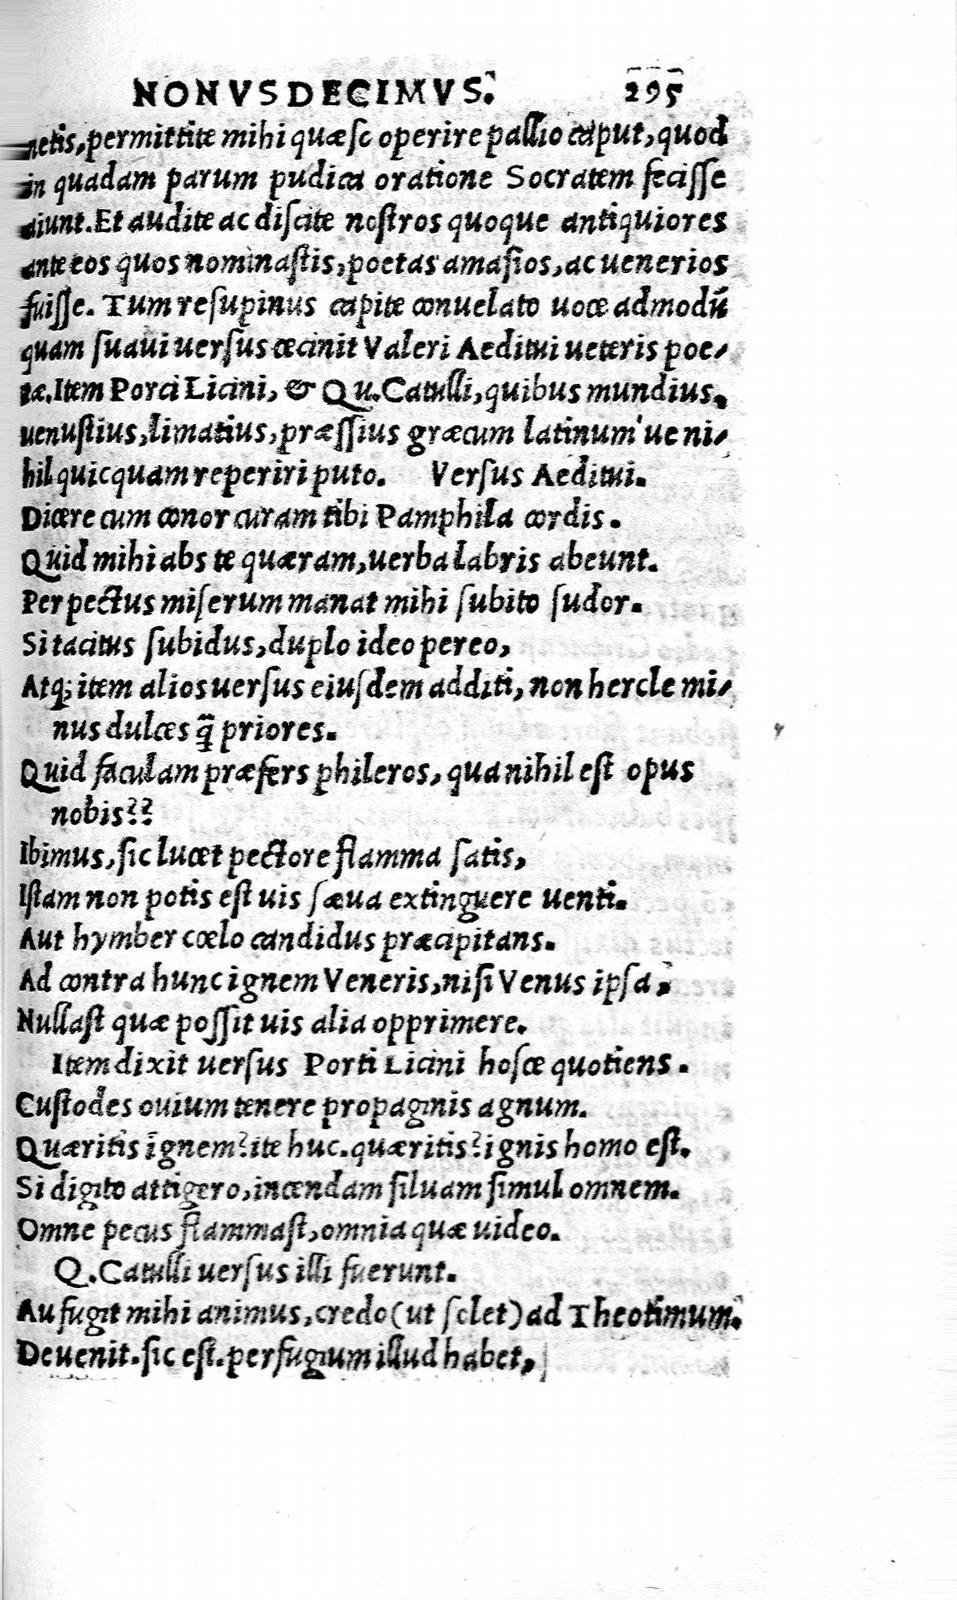 NONVSDECIMVS. 295
netis, permittite mihi quæso operire pallio caput, quod
in quadam parum pudica oratione Socratem fecisse
aiunt. Et audite ac discite nostros quoque antiquiores
ante eos quos nominastis, poetas amasios, ac uenerios
fuisse. Tum resupinus capite conuelato uoce admodū
quam suaui uersus cecinit Valeri Aeditui ueteris poe-
tæ. Item Porci Licini, & Qu. Catulli, quibus mundius,
uenustius, limatius, præssius græcum latinum'ue ni-
hil quicquam reperiri puto. Versus Aeditui.
Dicere cum conor curam tibi Pamphila cordis.
Quid mihi abs te quæram, uerba labris abeunt.
Per pectus miserum manat mihi subito sudor.
Si tacitus subidus, duplo ideo pereo,
Atq; item alios uersus eiusdem additi, non hercle mi-
nus dulces q̄ priores.
Quid faculam præfers phileros, qua nihil est opus
nobis??
Ibimus, sic lucet pectore flamma satis,
Istam non potis est uis sæua extinguere uenti.
Aut hymber cœlo candidus præcipitans.
Ad contra hunc ignem Veneris, nisi Venus ipsa,
Nullast quæ possit uis alia opprimere.
Item dixit uersus Porti Licini hosce quotiens.
Custodes ouium tenere propaginis agnum.
Quæritis ignem? ite huc. quæritis? ignis homo est.
Si digito attigero, incendam siluam simul omnem.
Omne pecus flammast, omnia quæ uideo.
Q. Catulli uersus illi fuerunt.
Aufugit mihi animus, credo (ut solet) ad Theotimum.
Deuenit. sic est. perfugium illud habet,